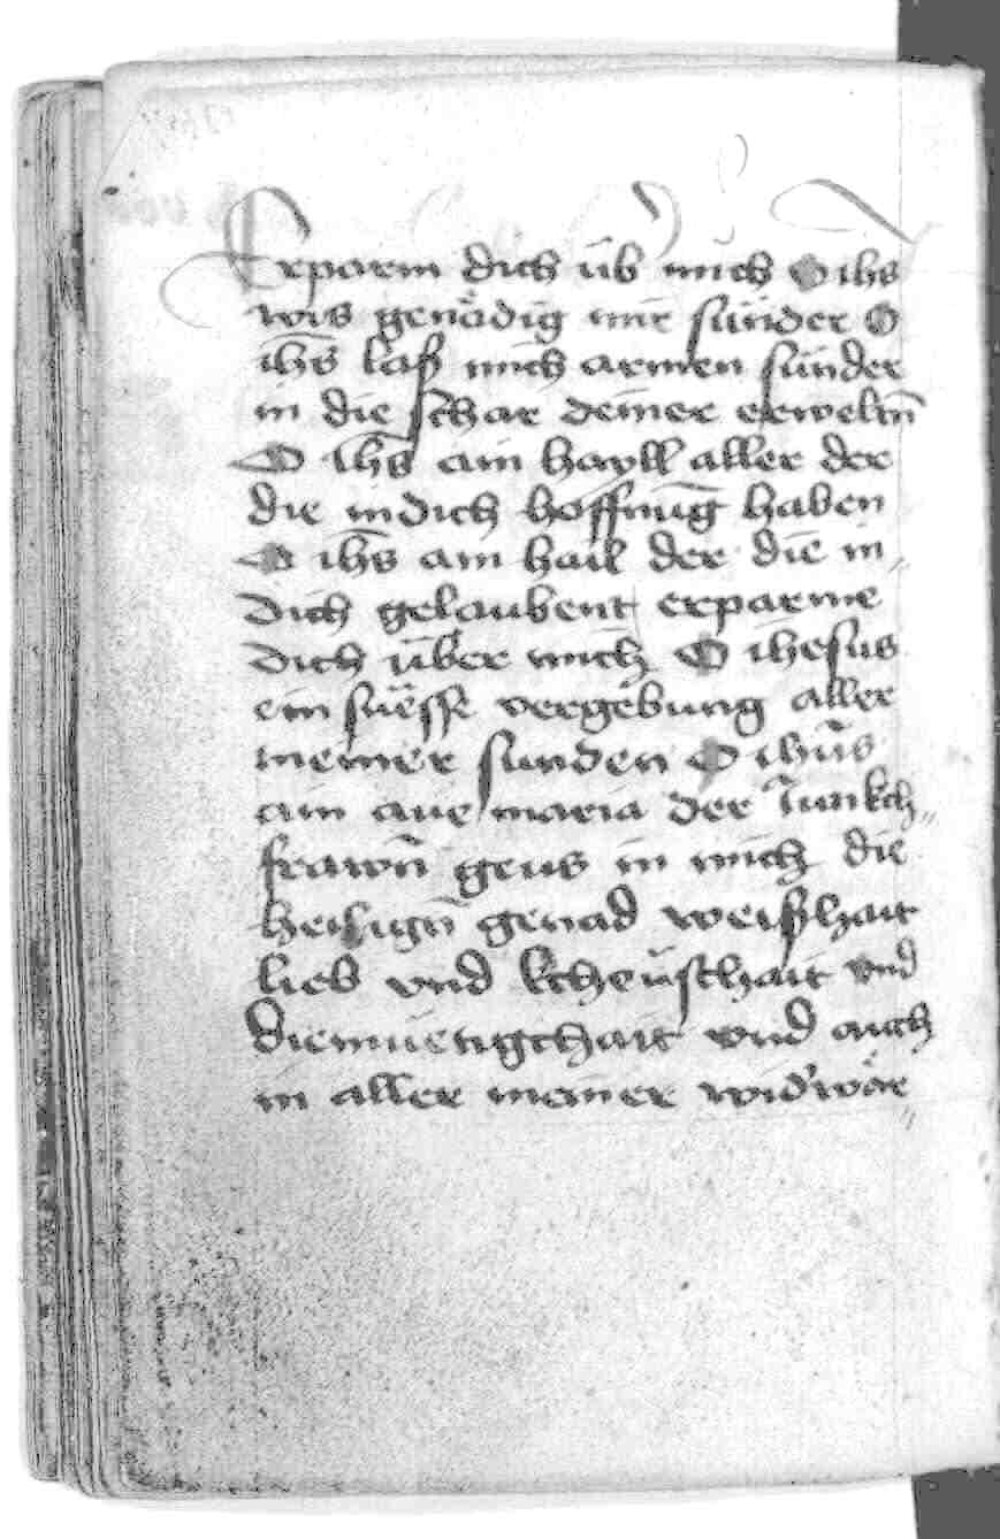 Erparm dich üb mich O ihs
wis genädig mir sünder O
ihs̄ laß mich armen sünder
in die schar deiner erweltn̄
O ihs̄ ain hayll aller der
die indich hoffnūg haben
O ihs̄ ain hail der die in
dich gelaubent erparme
dich über mich O ihesus
ein süësse vergebung aller
meiner sunden O ihūs
ain aue maria der Junkch„
frawn̄ geus in mich die
heilign̄ genad weißhait
lieb vnd kcheüschait vnd
diemuetigchait vnd auch
in aller meiner wid'wär„